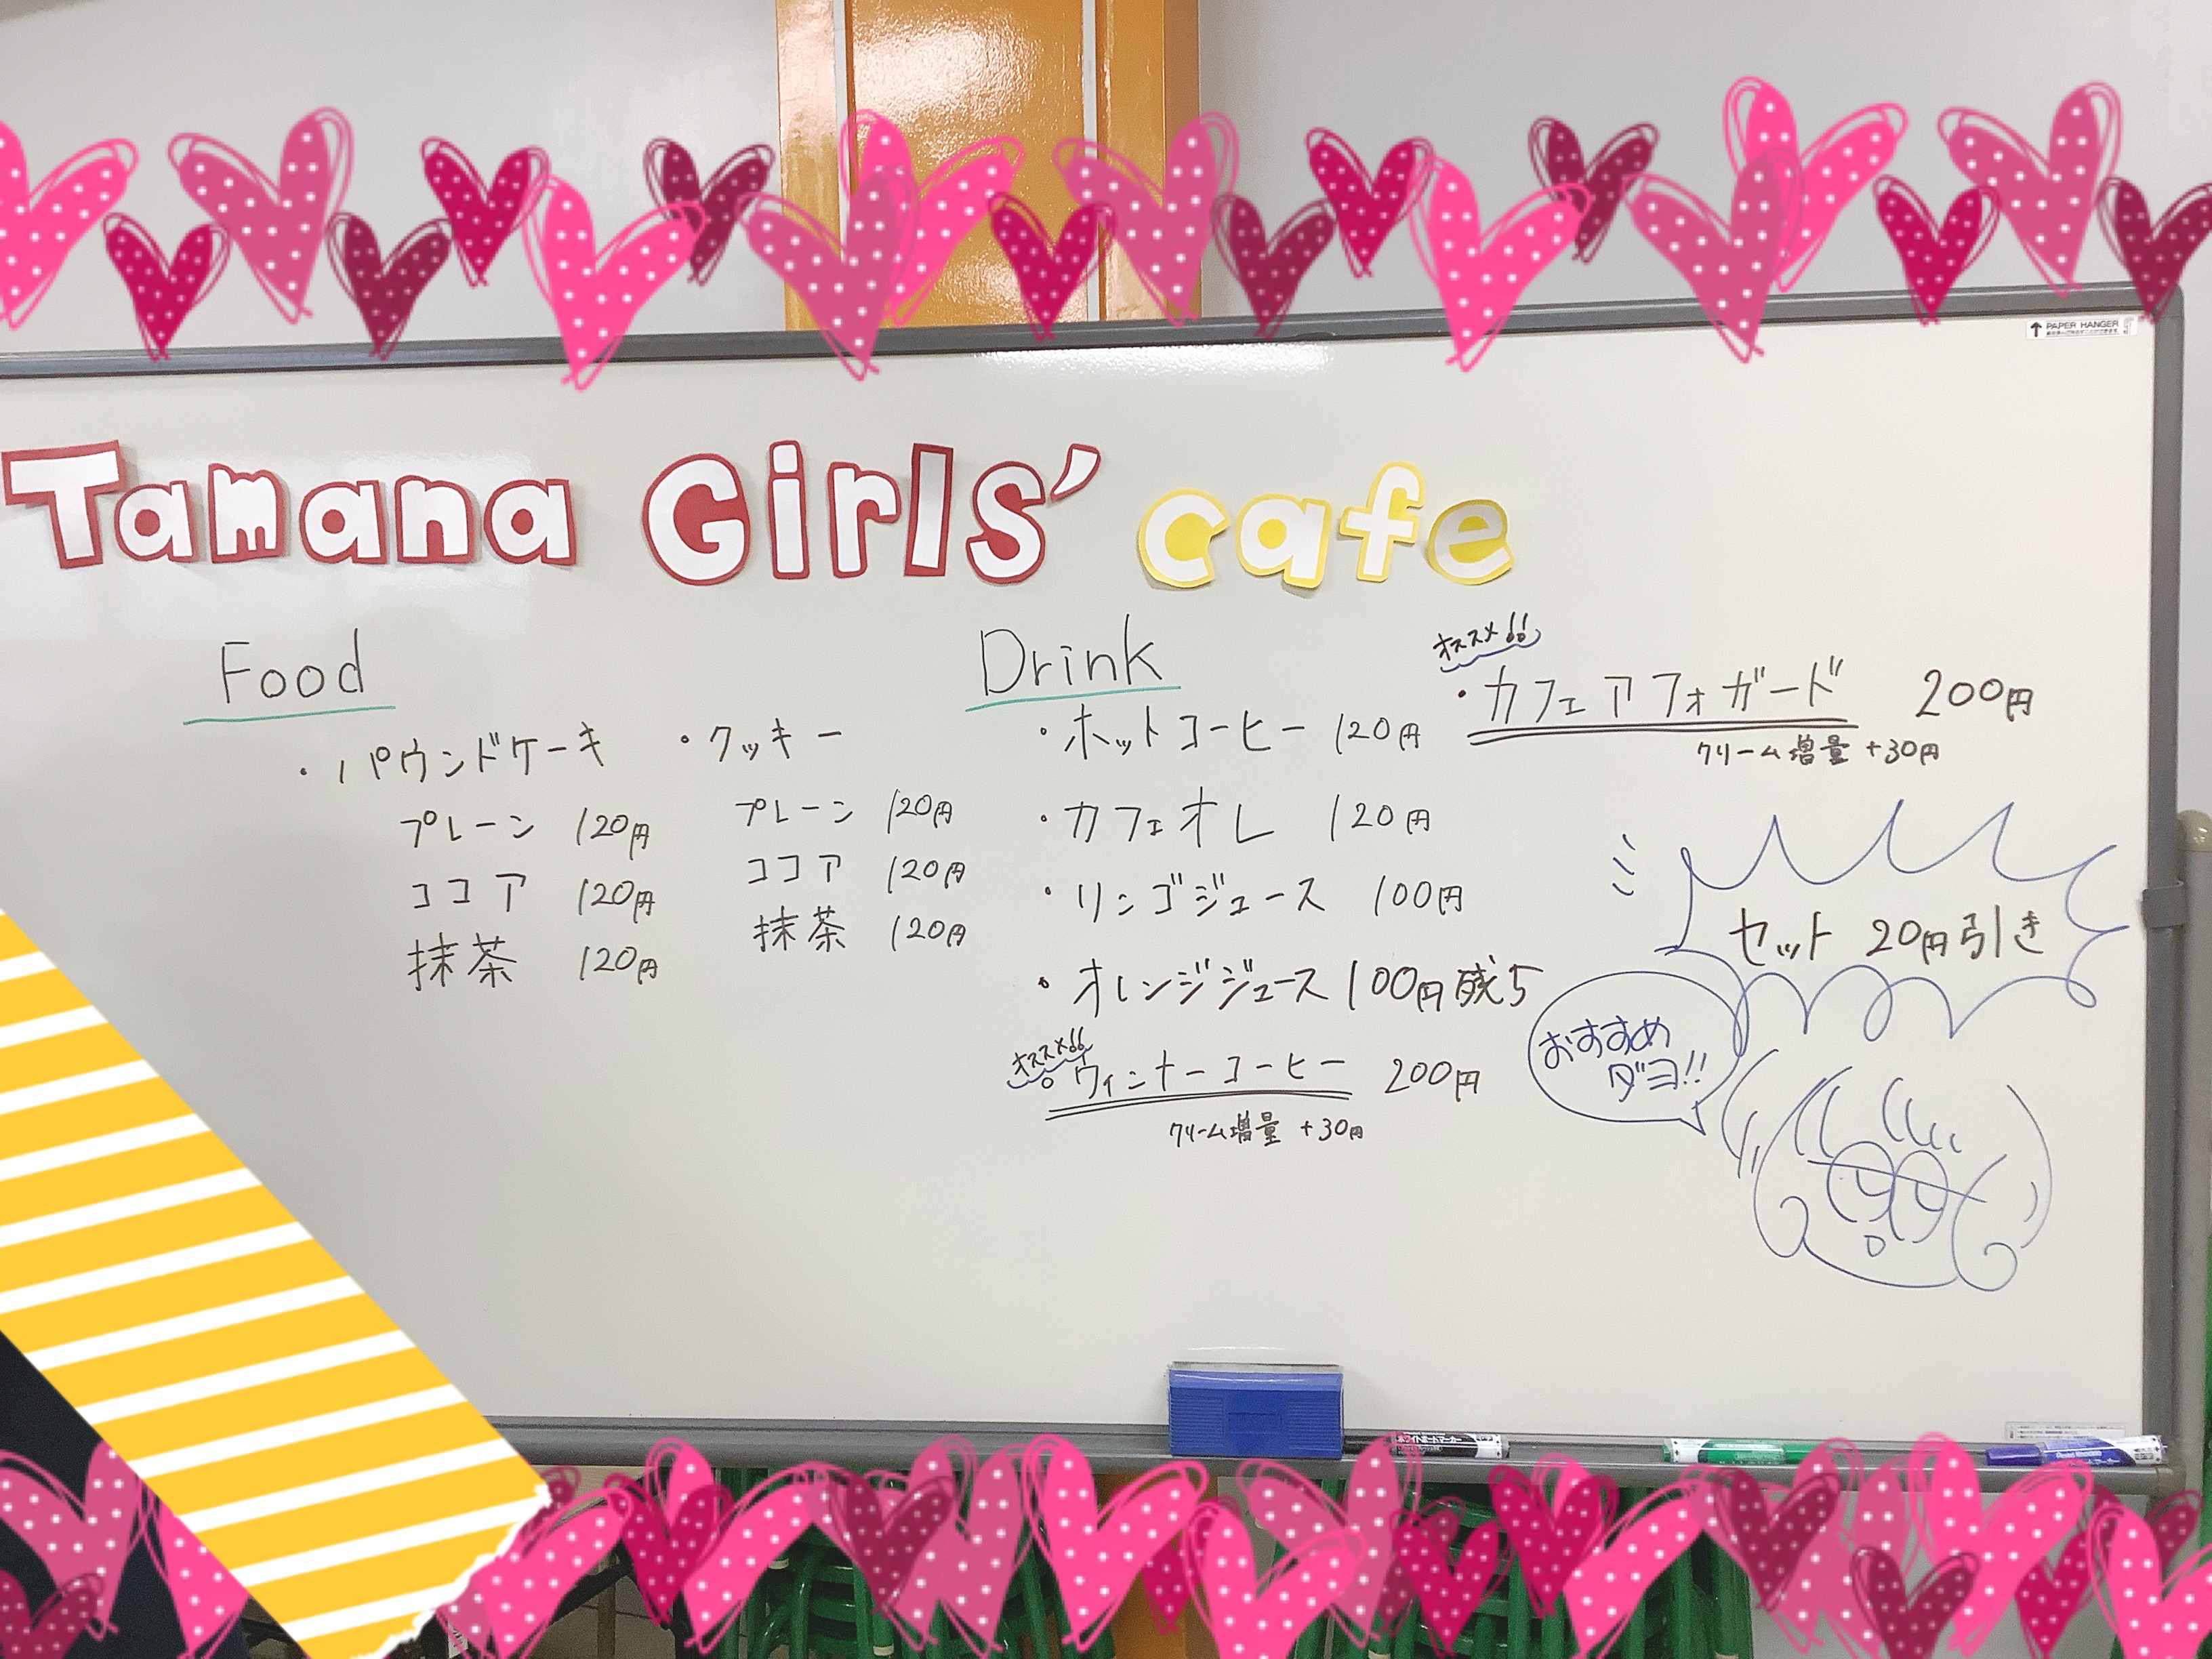 PAPER HANGER
Tamana Girls' cafe
Food
・パウンドケーキ
プレーン 120円
ココア 120円
抹茶 120円
・クッキー
プレーン 120円
ココア 120円
抹茶 120円
Drink
・ホットコーヒー 120円
・カフェオレ 120円
・リンゴジュース 100円
・オレンジジュース 100円 残5
オススメ!!
・ウィンナーコーヒー 200円
クリーム増量 +30円
オススメ!!
・カフェアフォガード 200円
クリーム増量 +30円
セット 20円引き
おすすめ
ダヨ!!